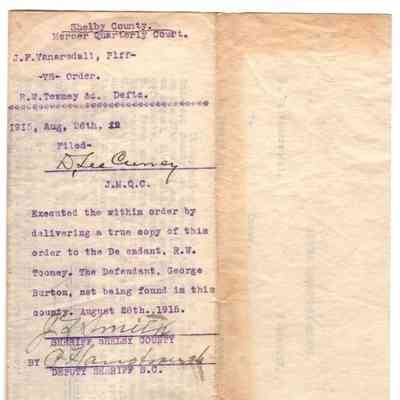 Shelby County.
Mercer Quarterly Court.
J.F.Vanarsdall, Plff-
-VS- Order.
R.W.Toomey &c. Defts.
1915, Aug, 26th, 12
Filed-
D, Lee Currey
J.M.Q.C.
Executed the within order by
delivering a true copy of this
order to the De endant, R.W.
Tooney. The Defendant, George
Burton, not being found in this
county. August 28th., 1915.
Smith
SHERIFF SHELBY COUNTY
BY
DEPUTY SHERIFF S.C.